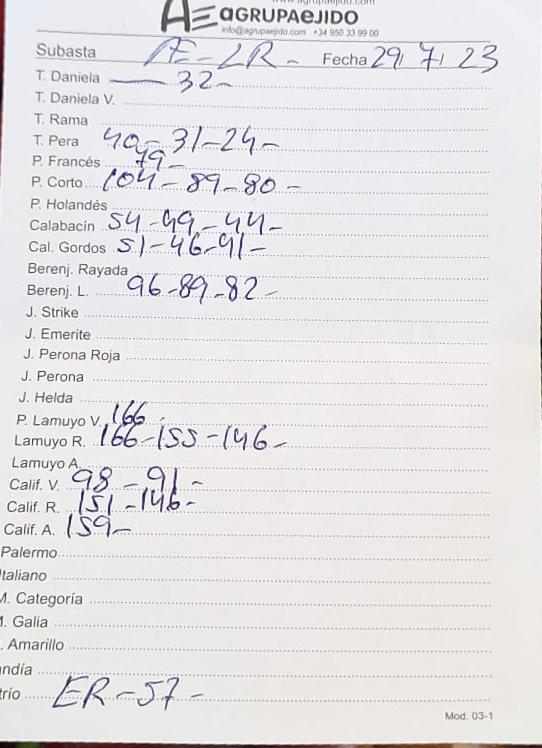 www.agrupaejido.com
AE aGRUPAEJIDO
info@agrupaejido.com +34 950 33 99 00
Subasta AE-LR- Fecha 29/ 7/ 23
T. Daniela — 32-
T. Daniela V.
T. Rama
T. Pera 40-31-24-
P. Francés 79-
P. Corto 104-89-80-
P. Holandés
Calabacín 54-49-44-
Cal. Gordos 51-46-41-
Berenj. Rayada
Berenj. L. 96-89-82-
J. Strike
J. Emerite
J. Perona Roja
J. Perona
J. Helda
P. Lamuyo V. 166
Lamuyo R. 166-155-146-
Lamuyo A.
Calif. V. 98-91-
Calif. R. 151-146-
Calif. A. 159-
Palermo
taliano
M. Categoría
. Galia
. Amarillo
ndía
trío ER-57-
Mod. 03-1